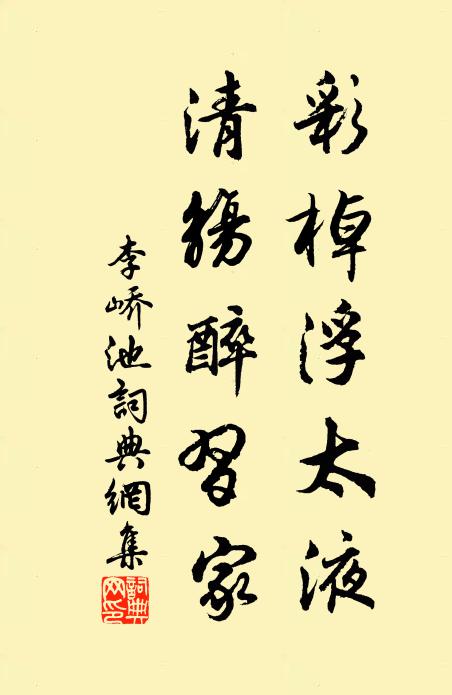 彩棹浮太液
清觴醉習家
李峤池詞典網集
詞典网印